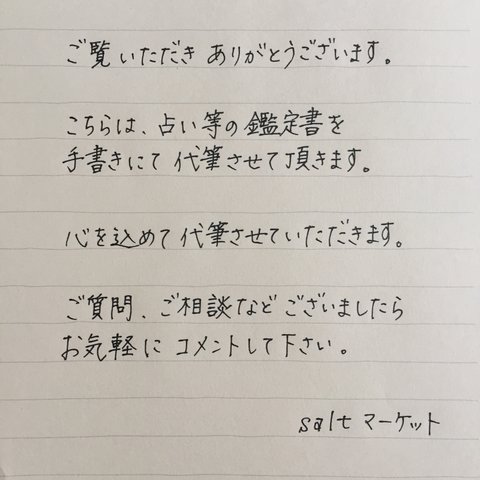 ご覧いただき ありがとうございます。
こちらは、占い等の鑑定書を
手書きにて 代筆させて頂きます。
心を込めて 代筆させていただきます。
ご質問、ご相談など ございましたら
お気軽に コメントして下さい。
salt マーケット